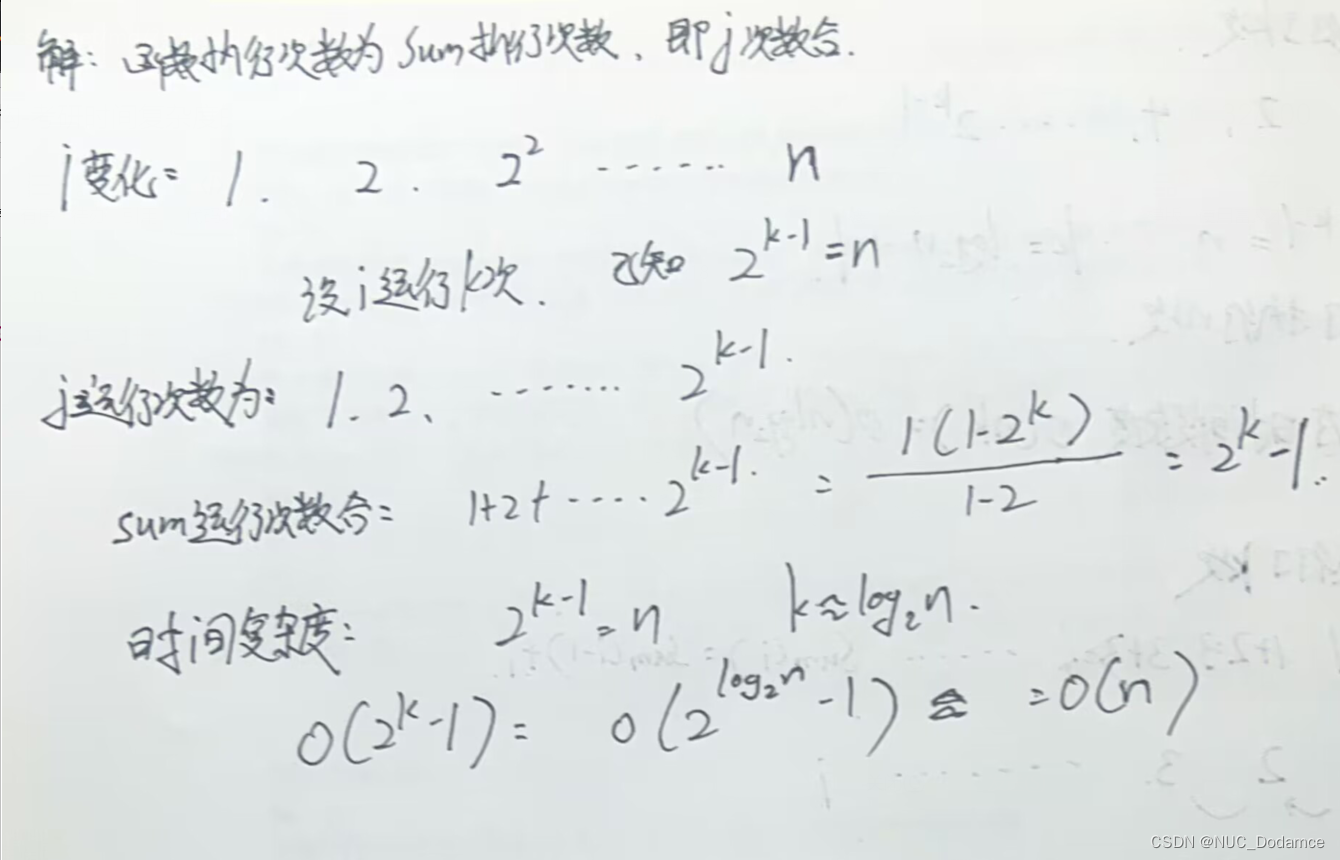 解: 函数执行次数为 Sum 执行次数, 即 j 次数合.
i 变化: 1. 2. 2² ...... n
设 i 运行 k次. 已知 2^{k-1} = n
j 运行次数为: 1. 2、 ....... 2^{k-1}.
sum 运行次数合: 1+2+ .... 2^{k-1}. = \frac{1(1-2^k)}{1-2} = 2^k - 1.
时间复杂度: 2^{k-1} = n k≈log₂n.
O(2^k - 1) = O(2^{log₂n} - 1) = O(n)
CSDN @NUC_Dodamce